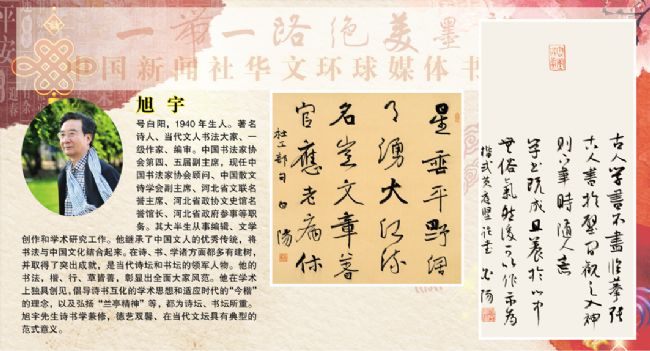 一带一路绝美墨
中国新闻社华文环球媒体书
平安
旭宇
号白阳，1940年生人。著名
诗人、当代文人书法大家、一
级作家、编审。中国书法家协
会第四、五届副主席，现任中
国书法家协会顾问、中国散文
诗学会副主席、河北省文联名
誉主席、河北省政协文史馆名
誉馆长、河北省政府参事等职
务。其大半生从事编辑、文学
创作和学术研究工作。他继承了中国文人的优秀传统，将
书法与中国文化结合起来。在诗、书、学诸方面都多有建树，
并取得了突出成就，是当代诗坛和书坛的领军人物。他的
书法，楷、行、草皆善，彰显出全面大家风范。他在学术
上独具创见，倡导诗书互化的学术思想和适应时代的“今楷”
的理念，以及弘扬“兰亭精神”等，都为诗坛、书坛所重。
旭宇先生诗书学兼修，德艺双馨、在当代文坛具有典型的
范式意义。
星垂平野阔
月湧大江流
名豈文章著
官應老病休
杜工部句 白陽
古人學書不盡臨摹張
古人書於壁间觀之入神
则下筆時随人意
学书既成且養於心中
無俗氣然後可以作示為
楷式 黄庭堅论書 白陽